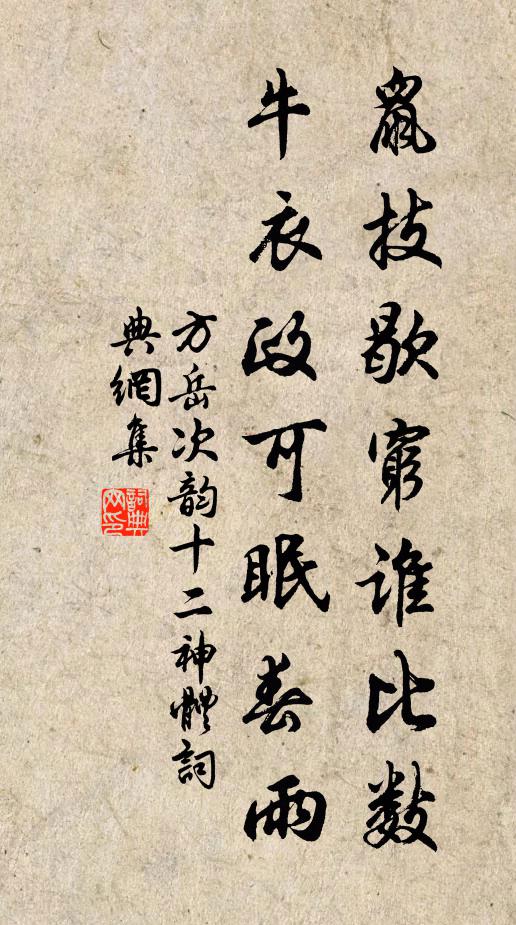 鼠技歇窮誰比數
牛衣政可眠春雨
方岳次韵十二神體詞
典網集
詞典網印